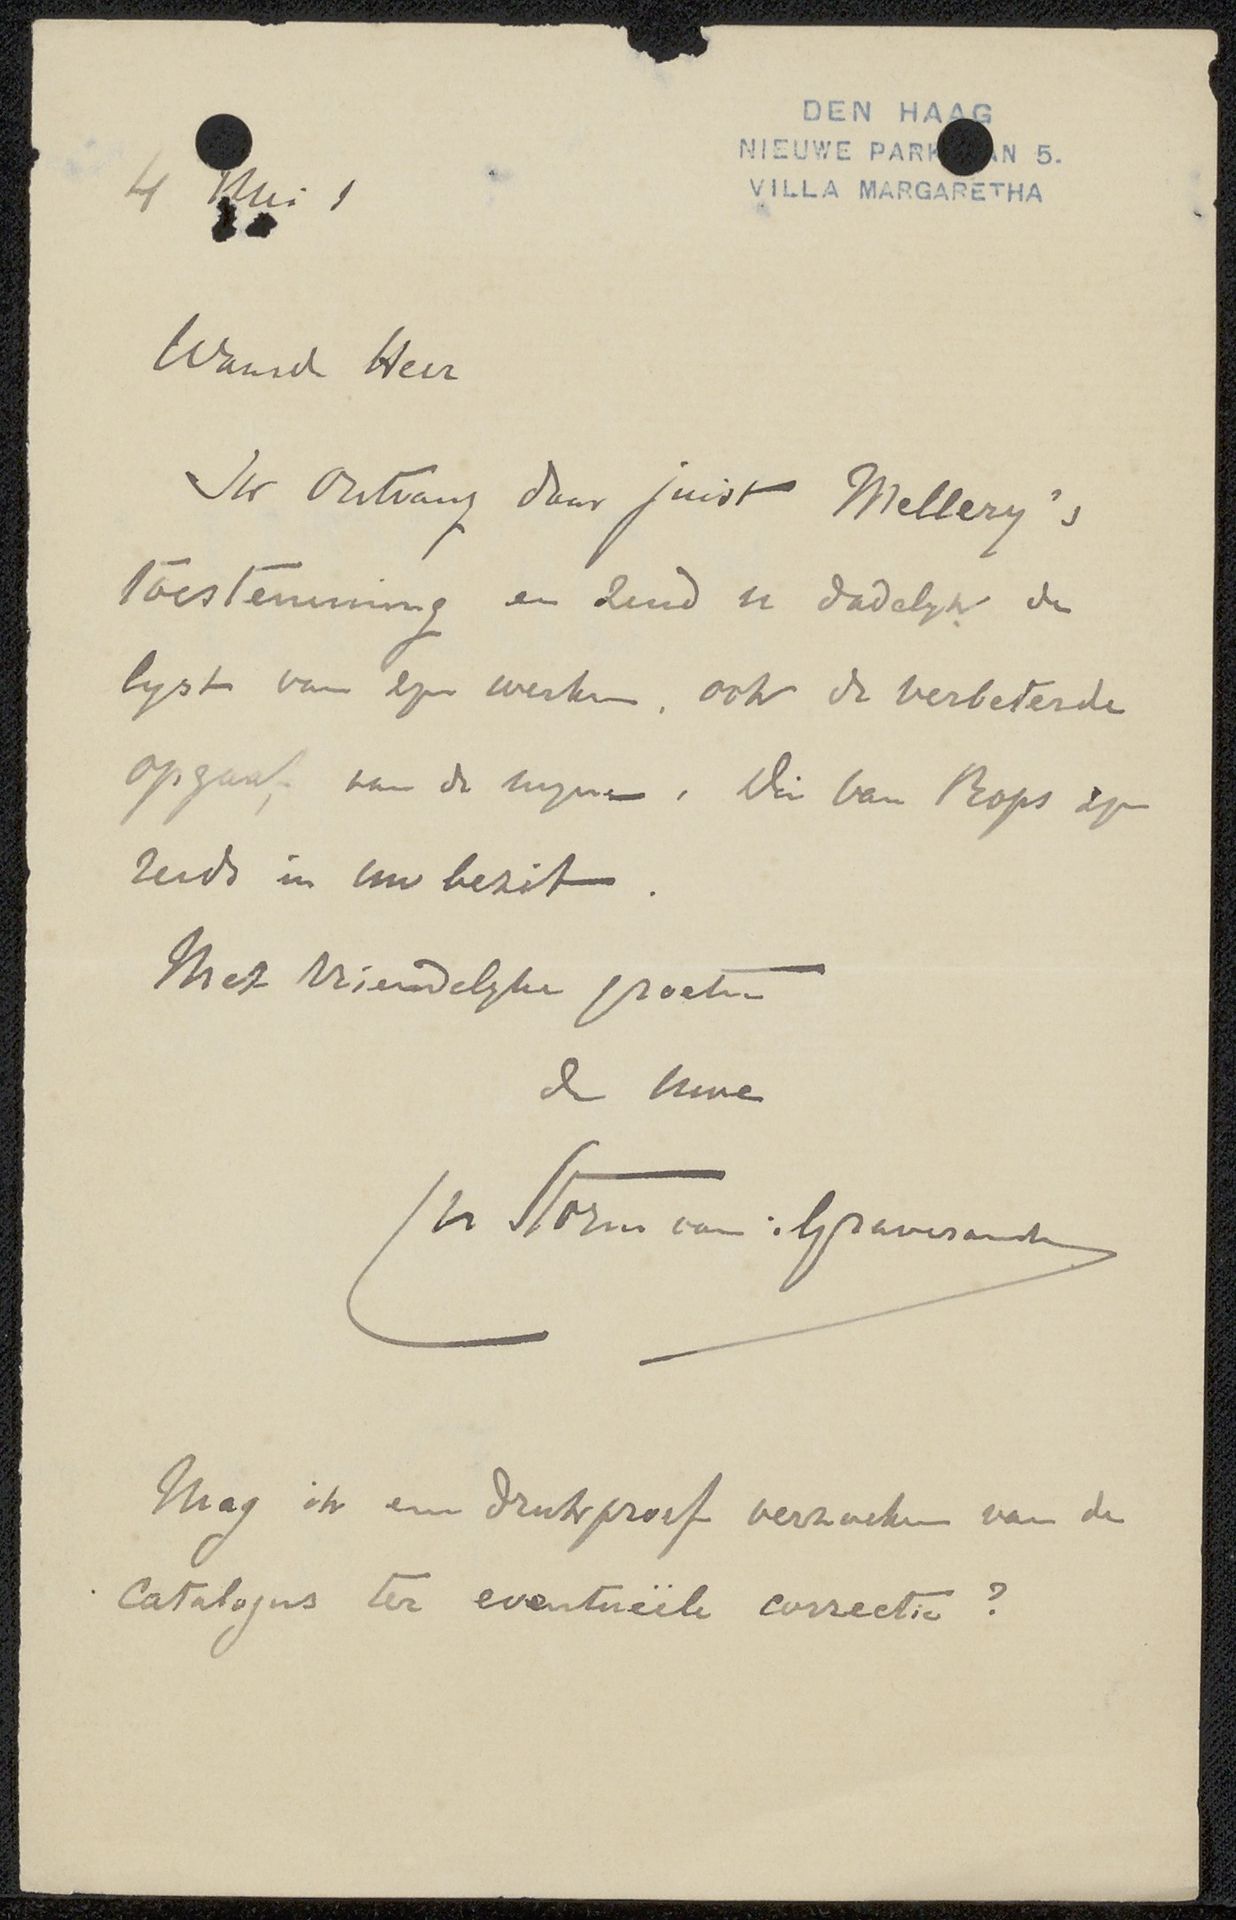 DEN HAAG
NIEUWE PARK AN 5.
VILLA MARGARETHA
4 Mei 1
Waarde Heer
Ik ontvang daar juist Mellery's
toestemming en zend u dadelyk de
lyst van zyn werken, ook de verbeterde
opgaaf, van de mynen. Die van Rops zyn
reeds in uw bezit.
Met vriendelyke groeten
de uwe
Storm van 's Gravesande
Mag ik een drukproef verzoeken van de
catalogus ter eventueële correctie?